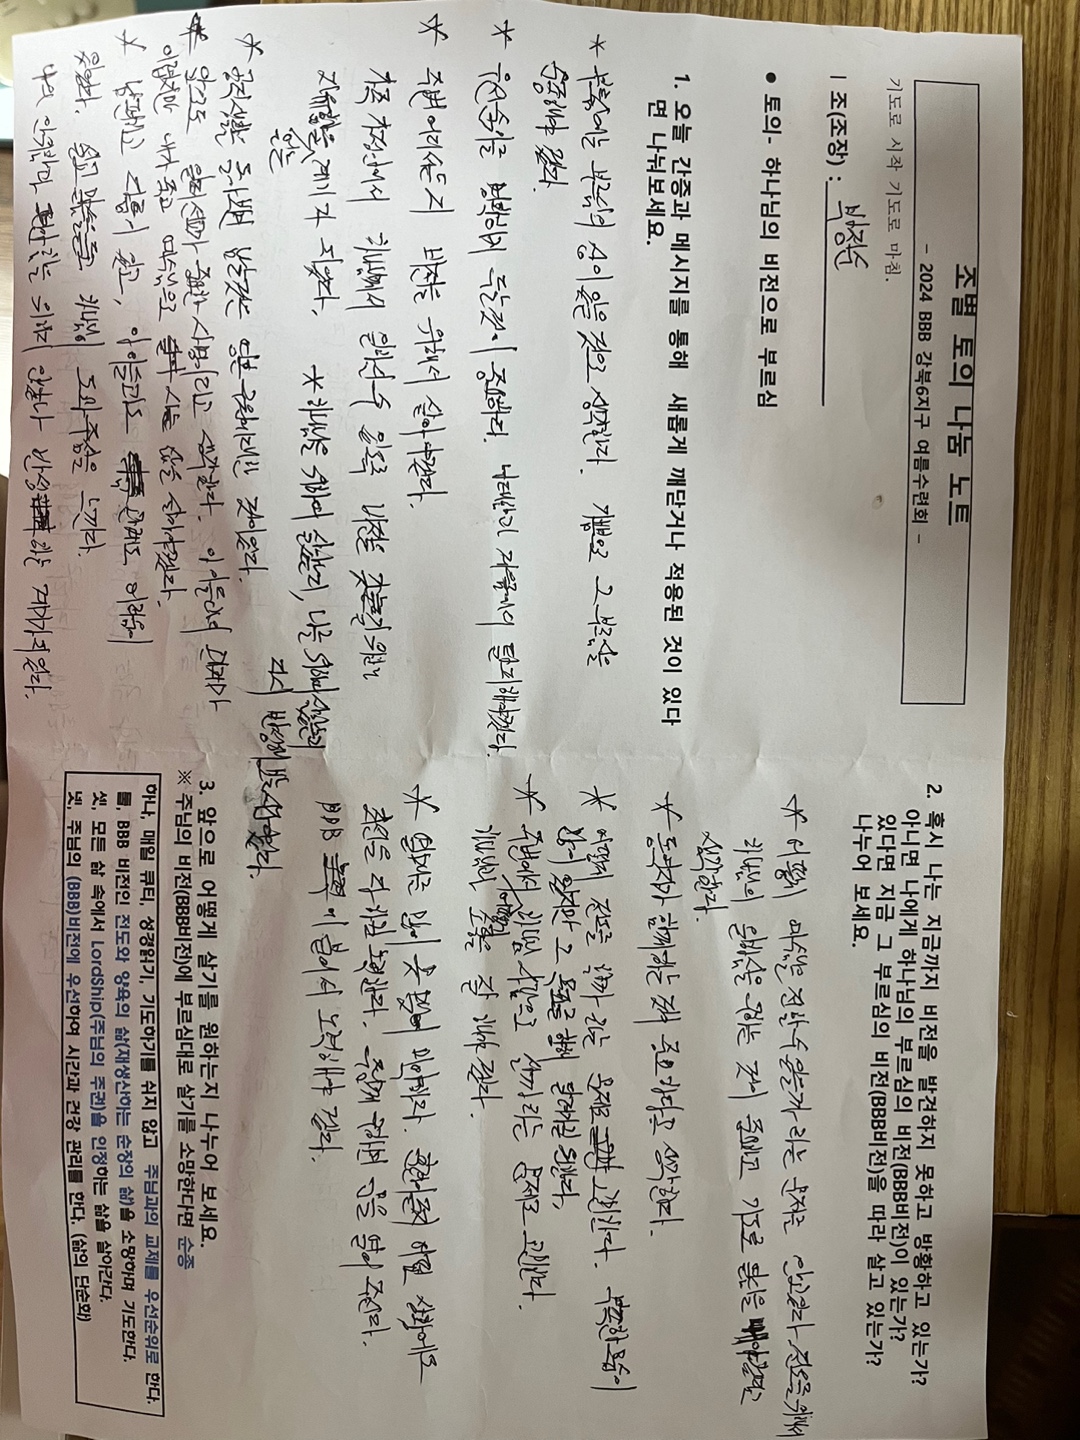 조별 토의 나눔 노트
- 2024 BBB 강북6지구 여름수련회 -
기도로 시작 기도로 마침.
1 조(조장) : 박정순
● 토의- 하나님의 비전으로 부르심
1. 오늘 간증과 메시지를 통해 새롭게 깨닫거나 적용된 것이 있다
면 나눠보세요.
* 부르심에는 부르심의 상이 있을 것으로 생각한다. 기쁨으로 그 부르심을
순종해야 겠다.
* 우선순위를 명확하게 두는것이 중요하다. 나태함과 게으름에서 탈피해야겠다.
* 주변 어디서든지 비전을 위해서 살아야겠다.
가족 가정안에서 하나님께서 일하실수 있도록 비전을 갖는
계기가 되었다.
* 하나님을 위하여 살았는지, 나를 위하여 살았는지
다시 반성해 보는 시간이었다.
* 공직생활을 돌아보면 남는것은 영혼구원에 대한 것이었다.
* 앞으로도 중요한 사명이라고 생각한다. 아이들과의 관계가
어렵지만 내가 죽고 예수님으로 사는 삶을 살아야겠다.
* 남편하고 다툼이 있고, 아이들과도 관계도 어려움이
있었다. 하나님이 도와주심을 느낀다.
나의 위하지 않았나 반성하는 계기가 되었다.
2. 혹시 나는 지금까지 비전을 발견하지 못하고 방황하고 있는가?
아니면 나에게 하나님의 부르심의 비전(BBB비전)이 있는가?
있다면 지금 그 부르심의 비전(BBB비전)을 따라 살고 있는가?
나누어 보세요.
* 어떻게 예수님을 전할 수 있을까 라는 문제를 안고있다. 전도를 위해서
하나님의 구하는 것이 중요하고 기도로
생각한다.
* 동역자가 함께하는 것이 중요하다고 생각한다.
* 어떻게 전도를 할까 라는 문제로 고민한다. 부족한 모습이
많이 있지만 그 목표를 향해 달려가길 원한다.
* 주변에서 어떻게 하나님 사람으로 살까 라는 문제로 고민한다.
하나님과 소통을 잘 해야 겠다.
* 열매를 많이 못 맺어 미약하다. 어떤 상황에도
최선을 다하려 노력한다. 주님께 구하면 문을 열어 주신다.
BBB 에 붙어서 노력해야 겠다.
3. 앞으로 어떻게 살기를 원하는지 나누어 보세요.
※ 주님의 비전(BBB비전)에 부르심대로 살기를 소망한다면 순종
하나, 매일 큐티, 성경읽기, 기도하기를 쉬지 않고 주님과의 교제를 우선순위로 한다.
둘, BBB 비전인 전도와 양육의 삶(재생산하는 순장의 삶)을 소망하며 기도한다.
셋, 모든 삶 속에서 LordShip(주님의 주권)을 인정하는 삶을 살아간다.
넷, 주님의 (BBB)비전에 우선하여 시간과 건강 관리를 한다. (삶의 단순화)